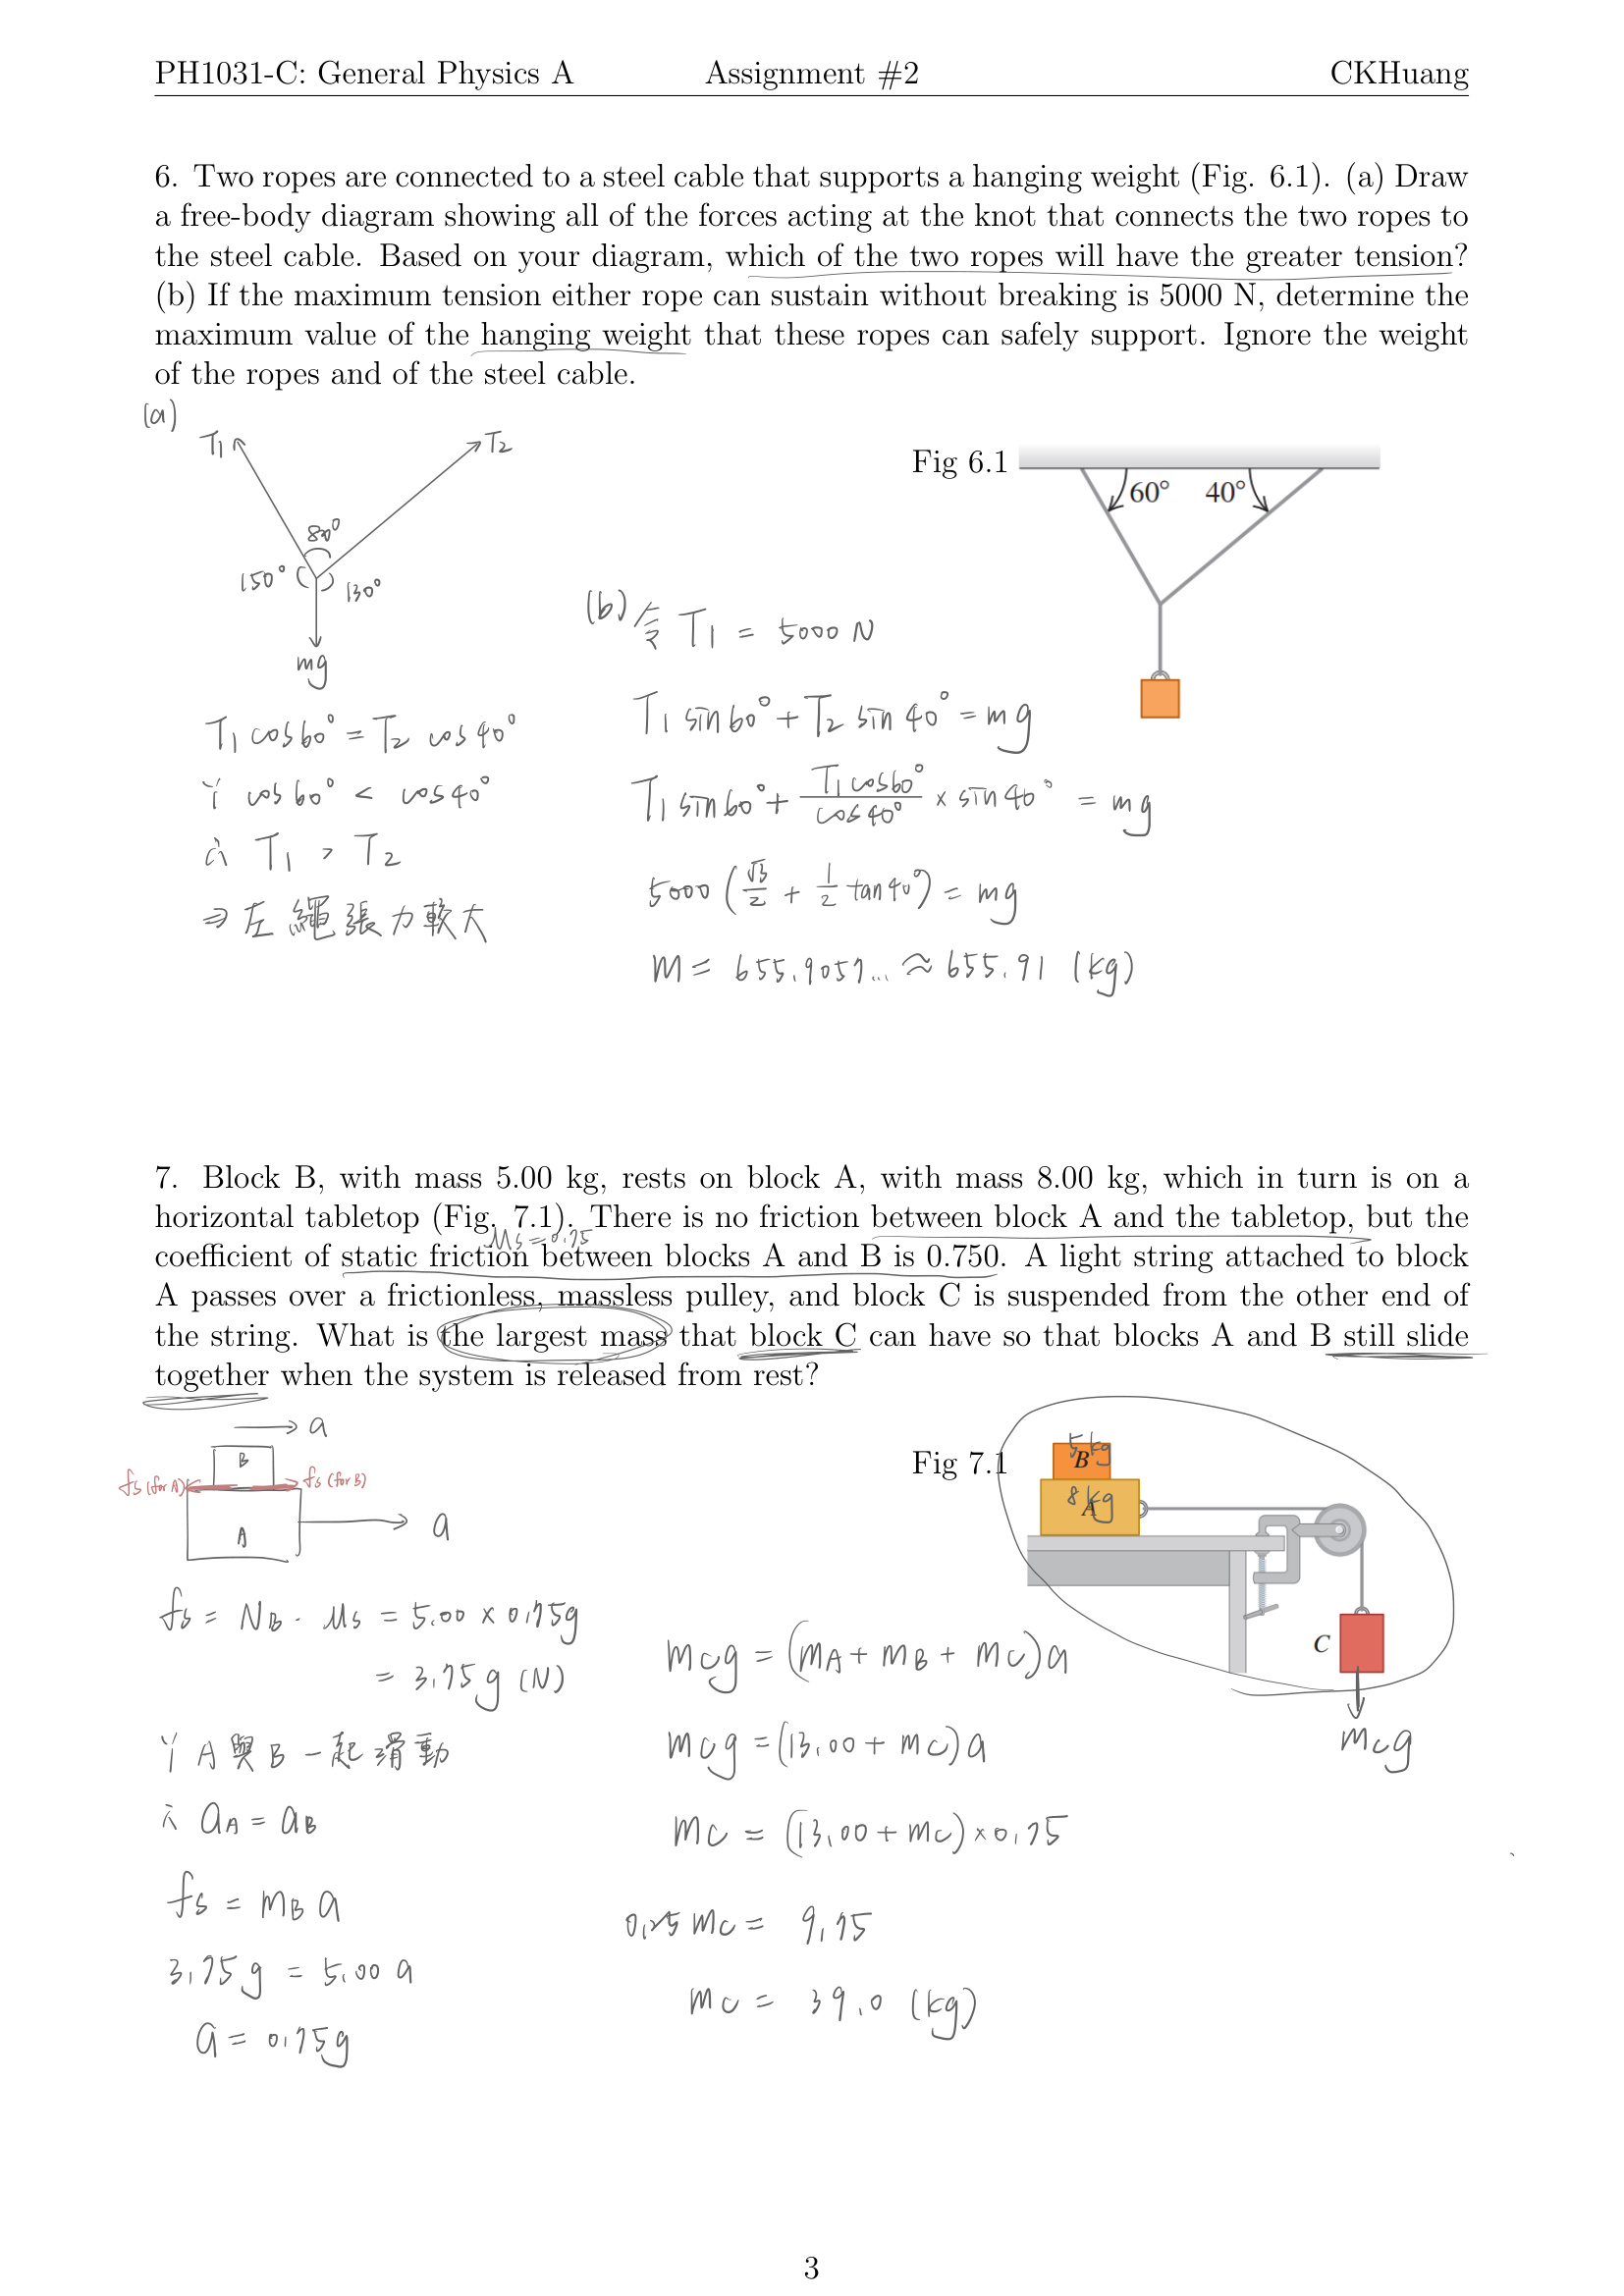 PH1031-C: General Physics A Assignment #2 CKHuang
6. Two ropes are connected to a steel cable that supports a hanging weight (Fig. 6.1). (a) Draw
a free-body diagram showing all of the forces acting at the knot that connects the two ropes to
the steel cable. Based on your diagram, which of the two ropes will have the greater tension?
(b) If the maximum tension either rope can sustain without breaking is 5000 N, determine the
maximum value of the hanging weight that these ropes can safely support. Ignore the weight
of the ropes and of the steel cable.
(a)
T₁ T₂
80°
150° 130°
mg
T₁ cos60° = T₂ cos40°
∵ cos60° < cos40°
∴ T₁ > T₂
⇒ 左繩張力較大
Fig 6.1
60° 40°
(b) 令 T₁ = 5000 N
T₁ sin60° + T₂ sin40° = mg
T₁ sin60° + T₁cos60°/cos40° × sin40° = mg
5000 (√3/2 + 1/2 tan40°) = mg
m = 655.9057... ≈ 655.91 (kg)
7. Block B, with mass 5.00 kg, rests on block A, with mass 8.00 kg, which in turn is on a
horizontal tabletop (Fig. 7.1). There is no friction between block A and the tabletop, but the
μs = 0.75
coefficient of static friction between blocks A and B is 0.750. A light string attached to block
A passes over a frictionless, massless pulley, and block C is suspended from the other end of
the string. What is the largest mass that block C can have so that blocks A and B still slide
together when the system is released from rest?
a
B
fs (for A) fs (for B)
A a
fs = NB · μs = 5.00 × 0.75g
= 3.75g (N)
∵ A與B一起滑動
∴ aA = aB
fs = mB a
3.75g = 5.00 a
a = 0.75g
Fig 7.1
5kg
B
8kg
A
C
mcg
mcg = (mA + mB + mc)a
mcg = (13.00 + mc)a
mc = (13.00 + mc) × 0.75
0.25 mc = 9.75
mc = 39.0 (kg)
3